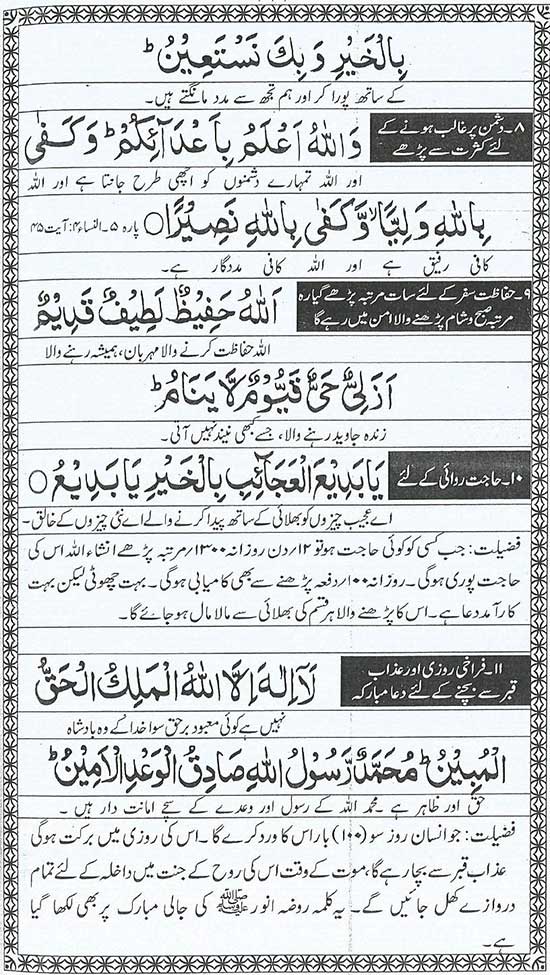 بِالْخَيْرِ وَبِكَ نَسْتَعِيْنُ ؕ
کے ساتھ پورا کر اور ہم تجھ سے مدد مانگتے ہیں۔
۸۔ دشمن پر غالب ہونے کے
لئے کثرت سے پڑھے
وَاللهُ اَعْلَمُ بِاَعْدَآئِكُمْ ؕ وَكَفٰى
اور اللہ تمہارے دشمنوں کو اچھی طرح جانتا ہے اور اللہ
بِاللهِ وَلِيًّا ۙ وَّكَفٰى بِاللهِ نَصِيْرًا ○ پارہ ۵۔ النساء ۴: آیت ۴۵
کافی رفیق ہے اور اللہ کافی مددگار ہے۔
۹۔ حفاظت سفر کے لئے سات مرتبہ پڑھے گیارہ
مرتبہ صبح و شام پڑھنے والا امن میں رہے گا
اَللهُ حَفِيْظٌ لَطِيْفٌ قَدِيْمٌ
اللہ حفاظت کرنے والا مہربان، ہمیشہ رہنے والا
اَزَلِیٌّ حَیٌّ قَيُّوْمٌ لَّا يَنَامُ ؕ
زندہ جاوید رہنے والا، جسے کبھی نیند نہیں آتی۔
۱۰۔ حاجت روائی کے لئے
يَا بَدِيْعَ الْعَجَآئِبِ بِالْخَيْرِ يَا بَدِيْعُ ○
اے عجیب چیزوں کو بھلائی کے ساتھ پیدا کرنے والے اے نئی چیزوں کے خالق۔
فضیلت: جب کسی کو کوئی حاجت ہو تو ۱۲؍ دن روزانہ ۱۳۰۰؍ مرتبہ پڑھے انشاء اللہ اس کی
حاجت پوری ہوگی۔ روزانہ ۱۰۰؍ دفعہ پڑھنے سے بھی کامیابی ہوگی۔ بہت چھوٹی لیکن بہت
کارآمد دعا ہے۔ اس کا پڑھنے والا ہر قسم کی بھلائی سے مالا مال ہو جائے گا۔
۱۱۔ فراخی روزی اور عذاب
قبر سے بچنے کے لئے دعا مبارکہ
لَآ اِلٰهَ اِلَّا اللهُ الْمَلِكُ الْحَقُّ
نہیں ہے کوئی معبود برحق سوا خدا کے وہ بادشاہ
الْمُبِيْنُ ؕ مُحَمَّدٌ رَّسُوْلُ اللهِ صَادِقُ الْوَعْدِ الْاَمِيْنُ ؕ
حق اور ظاہر ہے۔ محمد اللہ کے رسول اور وعدے کے سچے امانت دار ہیں۔
فضیلت: جو انسان روز سو (۱۰۰) بار اس کا ورد کرے گا۔ اس کی روزی میں برکت ہوگی
عذاب قبر سے بچا رہے گا، موت کے وقت اس کی روح کے جنت میں داخلہ کے لئے تمام
دروازے کھل جائیں گے۔ یہ کلمہ روضہ انور ﷺ کی جالی مبارک پر بھی لکھا گیا
ہے۔